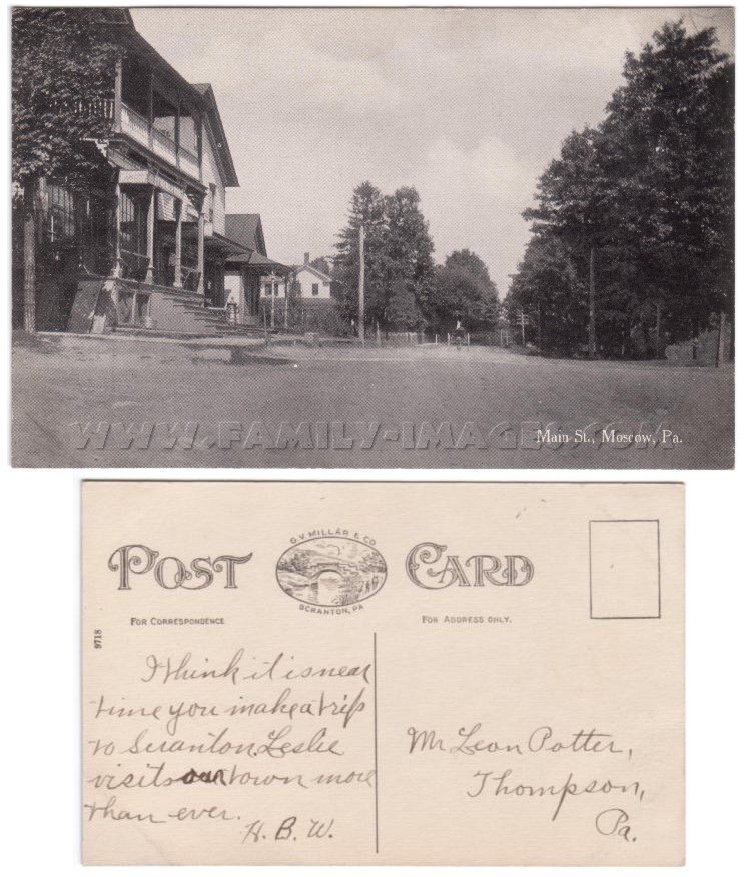 WWW.FAMILY-IMAGES.COM
Main St., Moscow, Pa.
POST CARD
G.V. MILLAR & CO
SCRANTON, PA
FOR CORRESPONDENCE
FOR ADDRESS ONLY.
9718
I think it is near
time you make a trip
to Scranton. Leslie
visits our town more
than ever.
H. B. W.
Mr Leon Potter,
Thompson,
Pa.